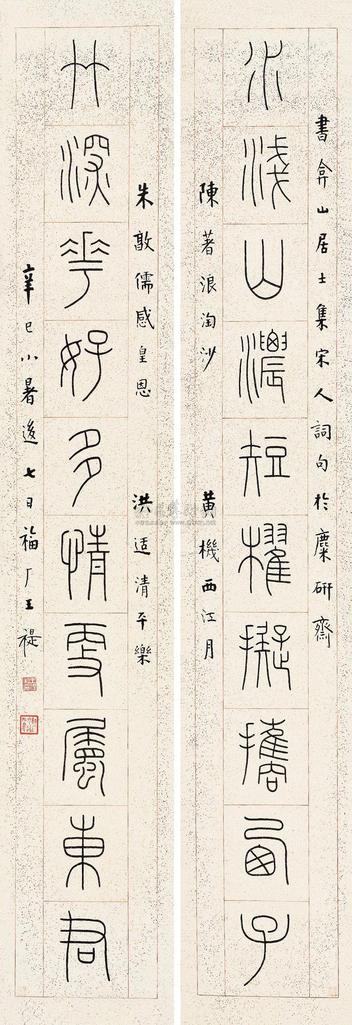 書弇山居士集宋人詞句於麋研齋
水淺山濃短櫂擬攜西子
陳著浪淘沙 黃機西江月
朱敦儒感皇恩 洪适清平樂
竹深華好多情更屬東君
辛巳小暑後七日福厂王禔